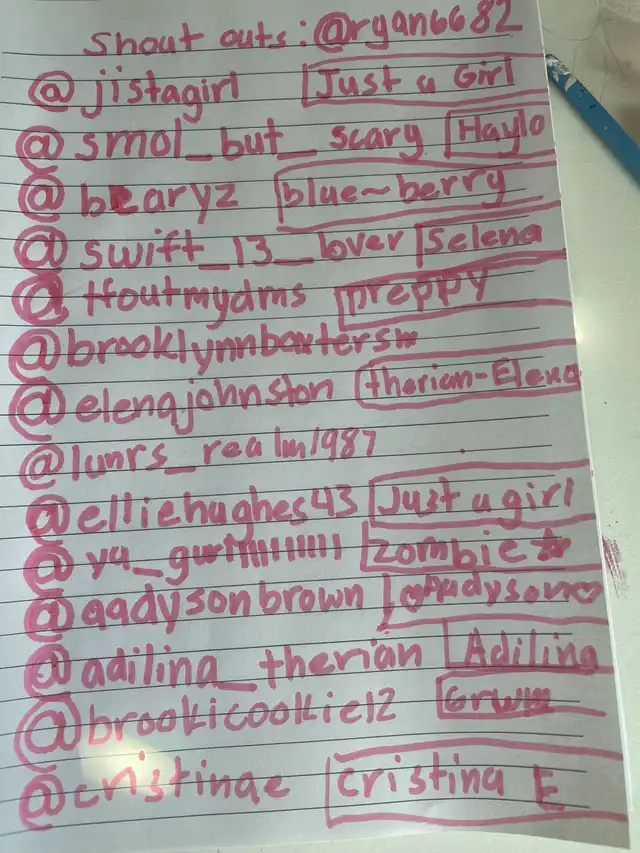 Shout outs: @ryan6682
@jistagirl Just a Girl
@smol_but_scary Haylo
@bearyz blue~berry
@swift_13_lover Selena
@tfoutmydms preppy
@brooklynnbaxtersw
@elenajohnston therian-Elena
@lunrs_realm1987
@elliehughes43 Just a girl
zombie
@aadysonbrown Aadyson
@adilina_therian Adilina
@brookicookie12 Grwm
@cristinae Cristina E